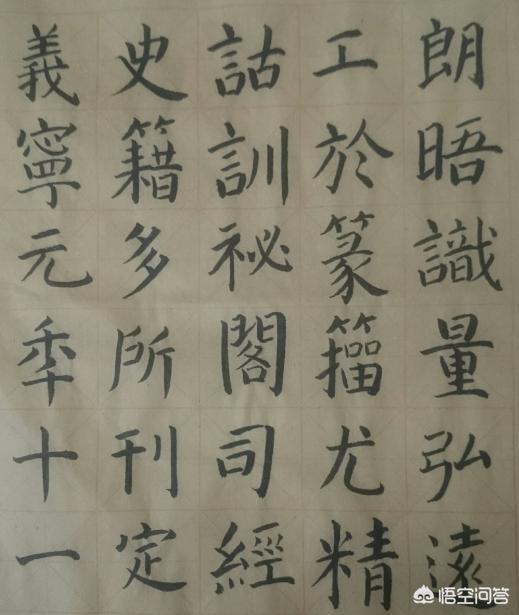 朗晤識量弘遠
工於篆籀尤精
詁訓祕閣司經
史籍多所刊定
義寧元季十一
悟空问答